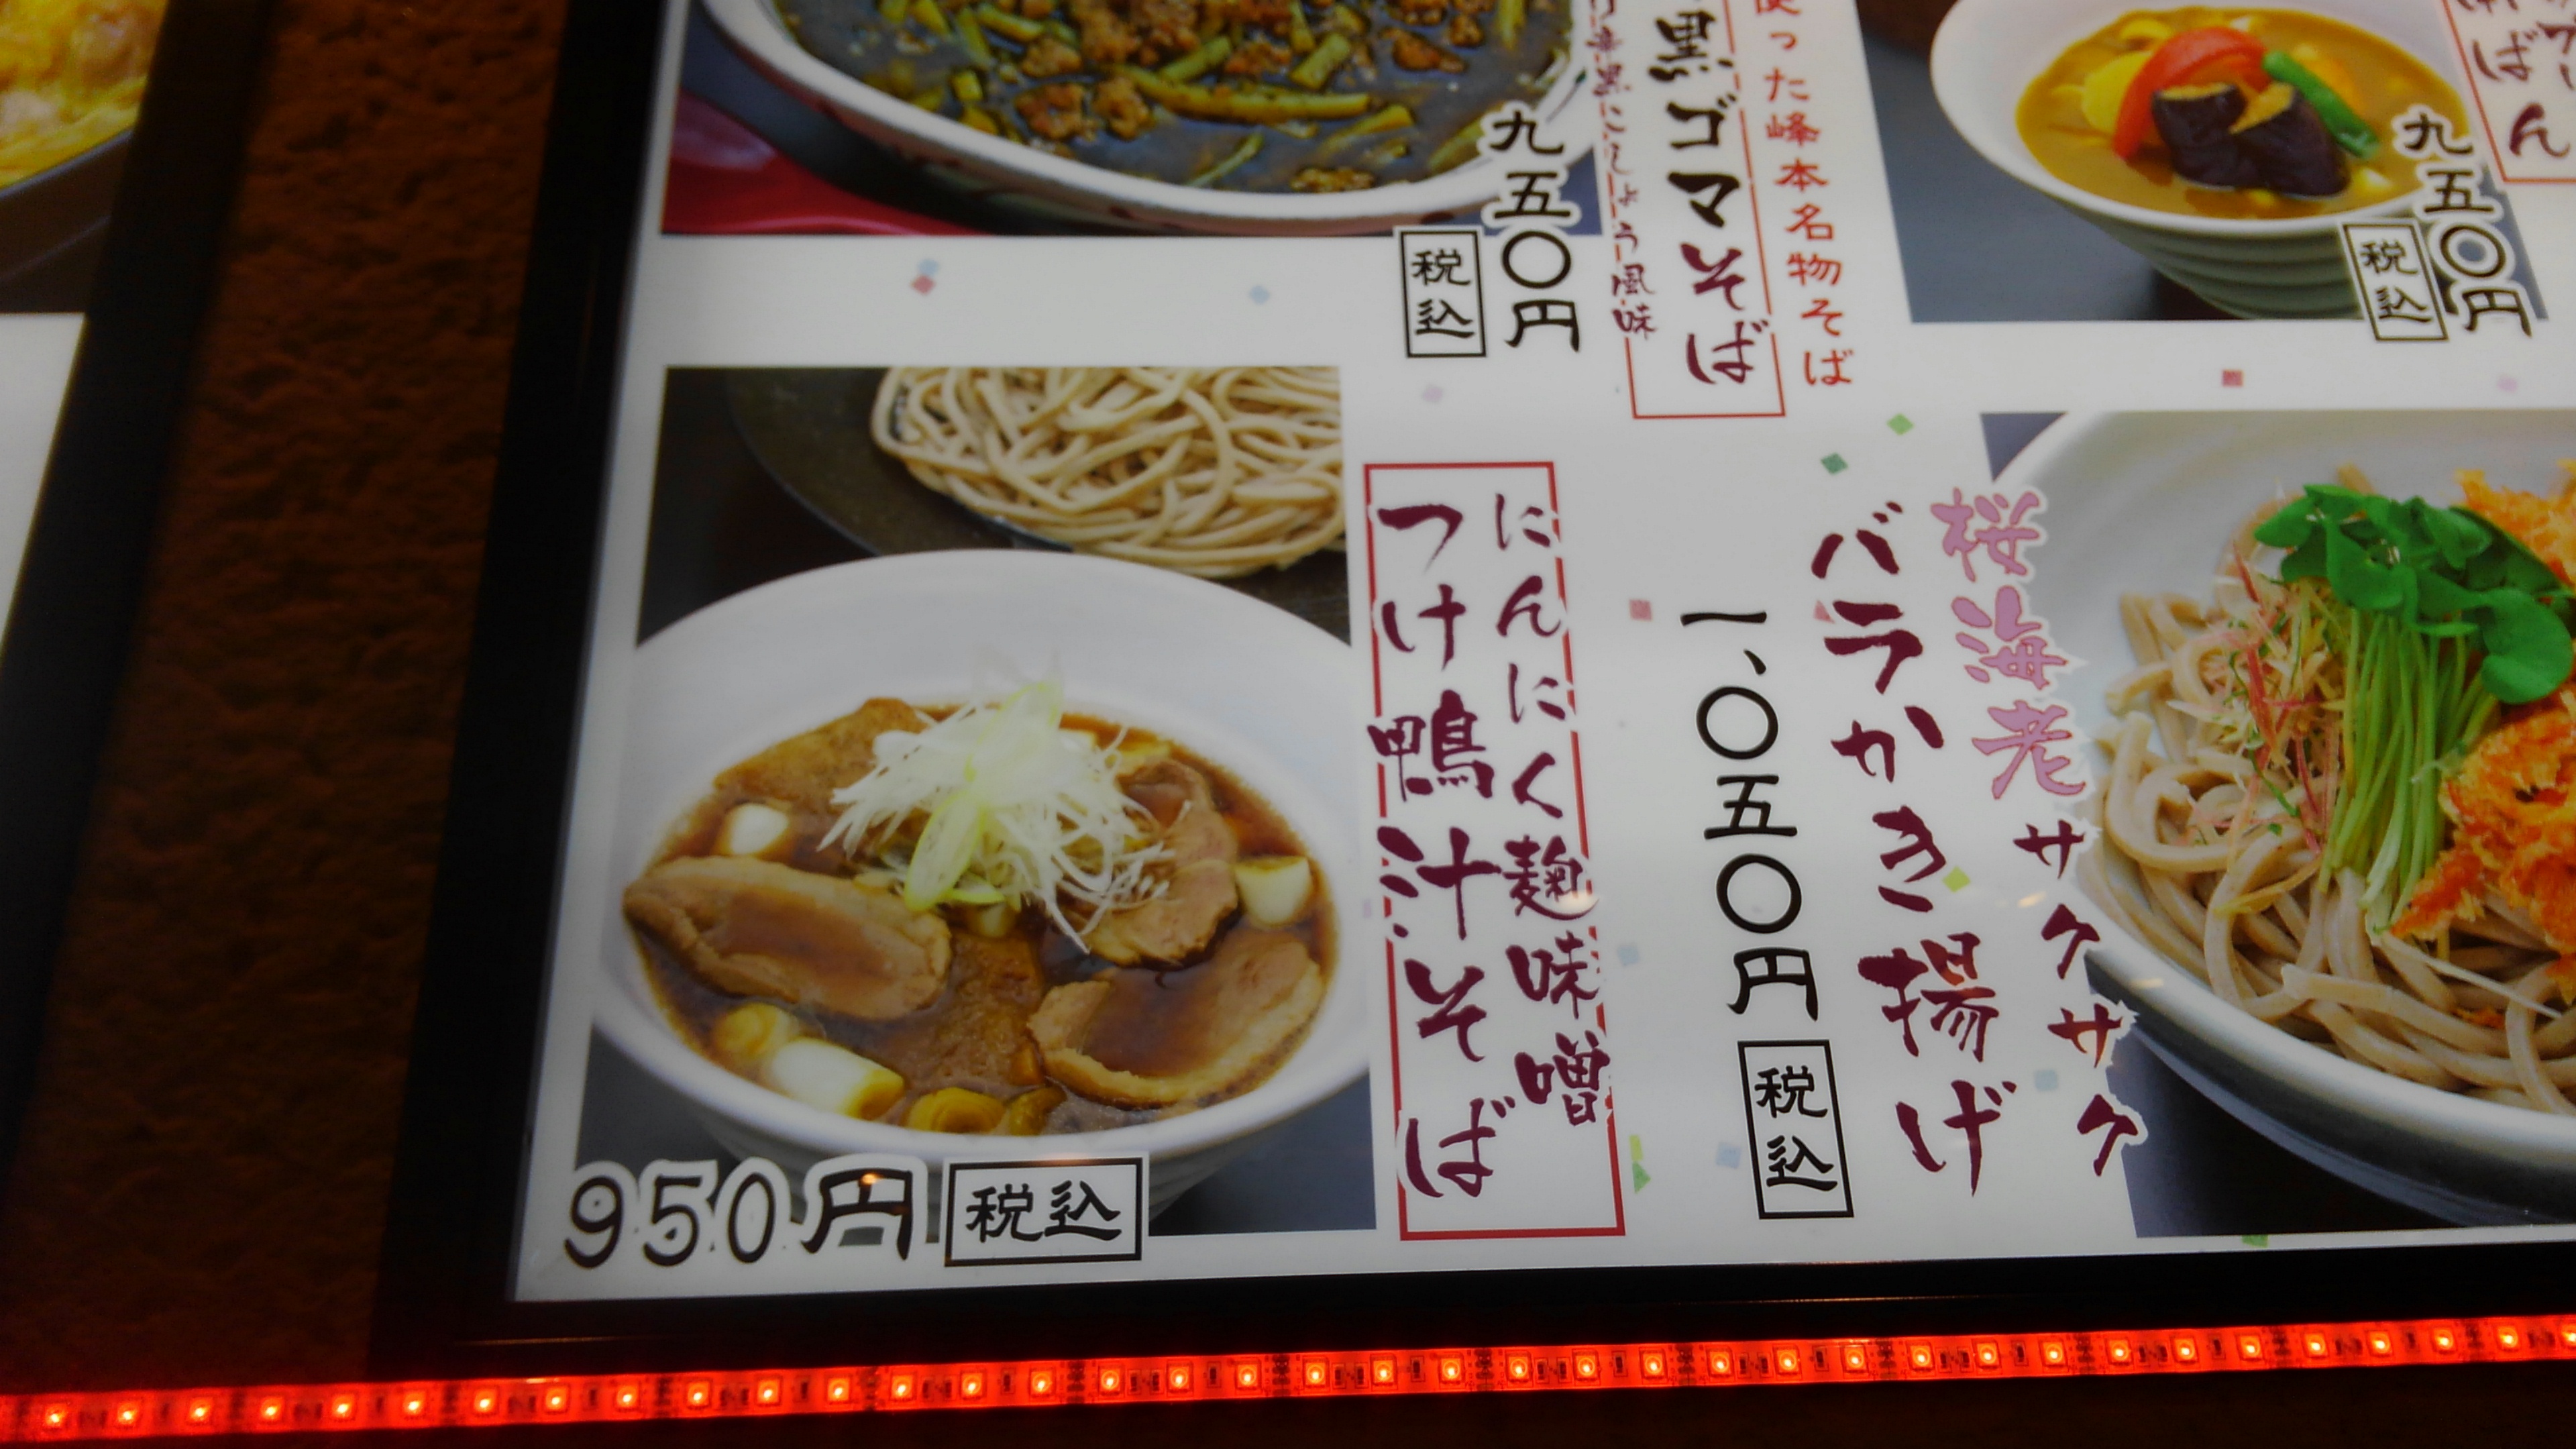 ばん
九五〇円
税込
使った峰本名物そば
黒ゴマそば
風味
九五〇円
税込
桜海老
サクサク
バラかき揚げ
一、〇五〇円
税込
にんにく麹味噌
つけ鴨汁そば
950円
税込